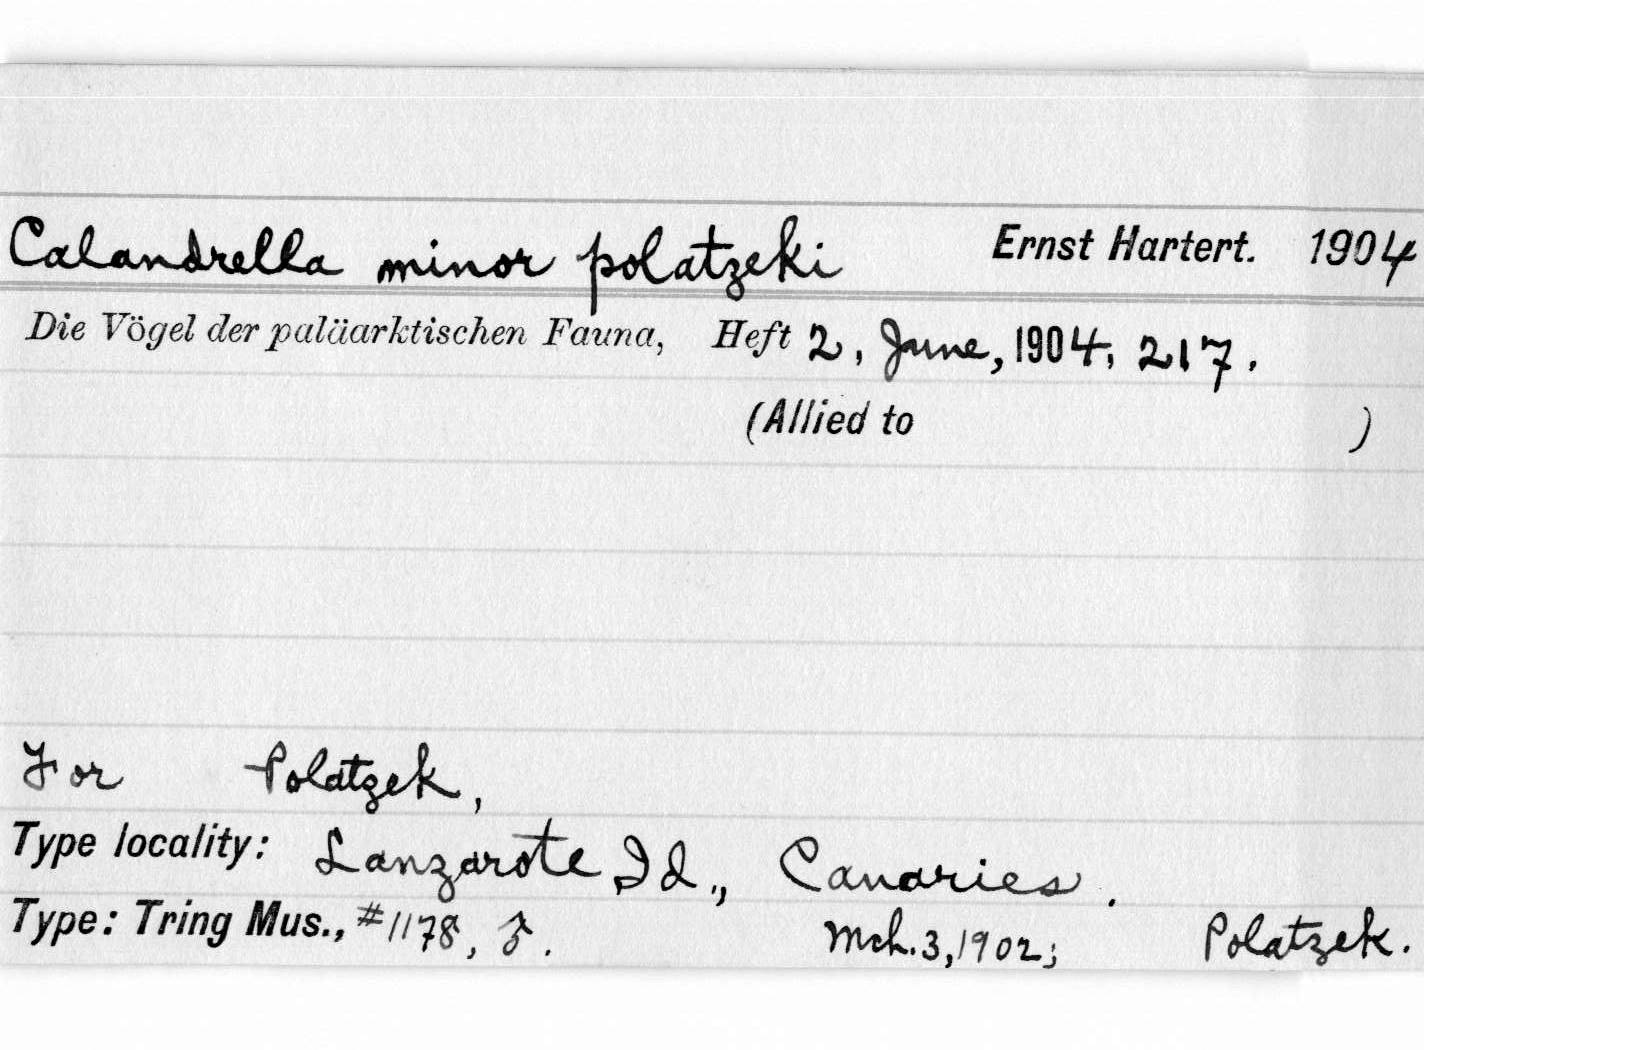 Calandrella minor polatzeki Ernst Hartert. 1904
Die Vögel der paläarktischen Fauna, Heft 2, June, 1904, 217.
(Allied to )
For Polatzek,
Type locality: Lanzarote Id., Canaries.
Type: Tring Mus., #1178, ♂. Mch. 3, 1902; Polatzek.